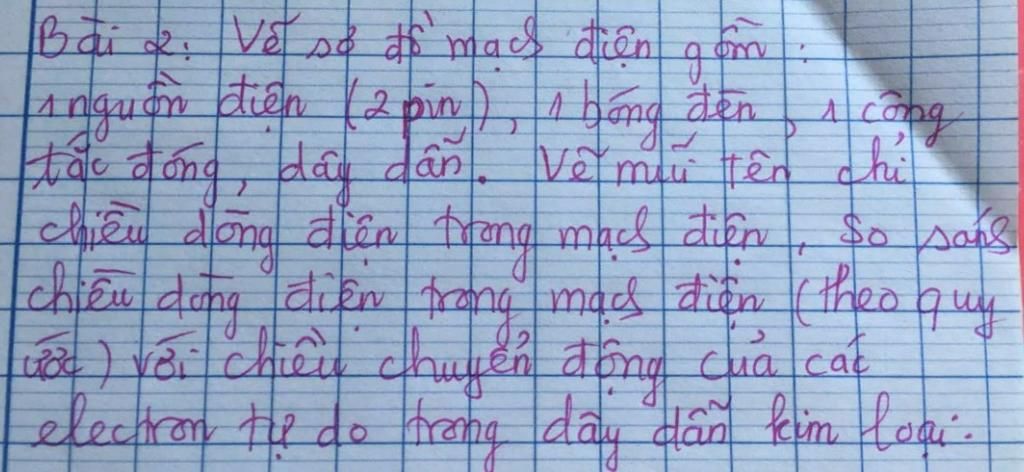 Bài 2: Vẽ sơ đồ mạch điện gồm:
1 nguồn điện (2 pin), 1 bóng đèn, 1 công
tắc đóng, dây dẫn. Vẽ mũi tên chỉ
chiều dòng điện trong mạch điện, so sánh
chiều dòng điện trong mạch điện (theo quy
ước) với chiều chuyển động của các
electron tự do trong dây dẫn kim loại.